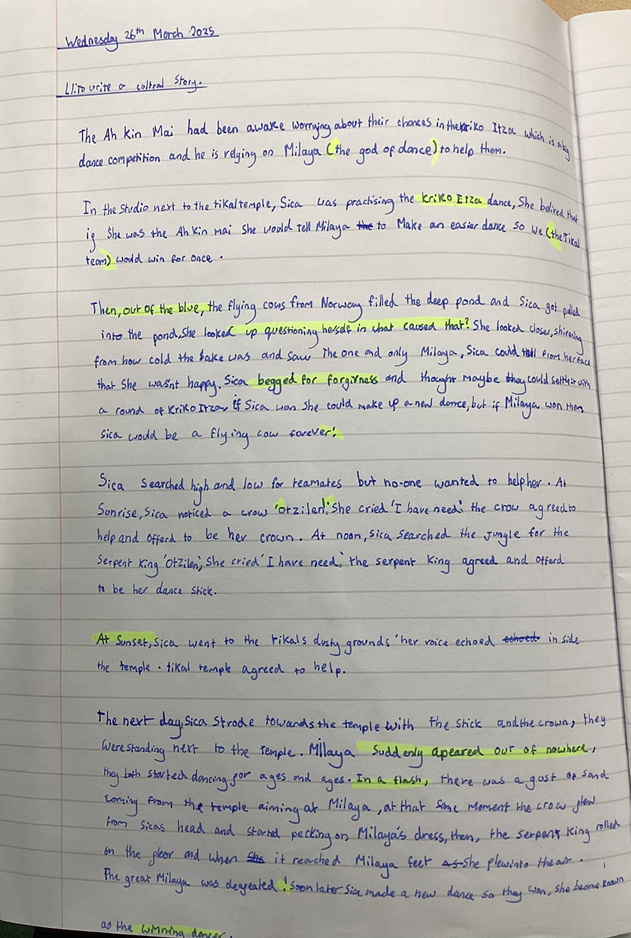 Wednesday 26th March 2025
LI:to write a coltral story.
The Ah Kin Mai had been awake worrying about their chances in the Kriko Itza which is a big
dance competition and he is relying on Milaya (the god of dance) to help them.
In the Studio next to the tikal temple, Sica was practising the Kriko Itza dance, She belived that
if She was the Ah Kin mai She would tell Milaya the to Make an easier dance so we (the Tikal
team) would win for once.
Then, out of the blue, the flying cows from Norway filled the deep pond and Sica got pulled
into the pond. She looked up questioning herself in what caused that? She looked closer, shivering
from how cold the lake was and saw The one and only Milaya, Sica could tell from her face
that She wasnt happy. Sica begged for forgivness and thought maybe they could settle it with
a round of Kriko Itza, if Sica won She could make up a new dance, but if Milaya won then
Sica would be a flying cow forever!
Sica Searched high and low for teamates but no-one wanted to help her. At
Sunrise, Sica noticed a crow 'Otzilen!' She cried 'I have need.' the crow agreed to
help and offerd to be her crown. At noon, Sica searched the jungle for the
Serpent King 'Otzilen,' She cried 'I have need.' the serpent King agreed and offerd
to be her dance stick.
At Sunset, Sica went to the tikals dusty grounds 'her voice echoed echoed in side
the temple. tikal temple agreed to help.
The next day, Sica Strode towards the temple with the stick and the crown, they
were standing next to the temple. Milaya Suddenly apeared out of nowhere,
they both started dancing for ages and ages. In a flash, there was a gust of sand
coming from the temple aiming at Milaya, at that Same moment the crow flew
from Sicas head and started pecking on Milaya's dress, then, the serpent King rolled
on the floor and when She it reached Milaya feet as She flew into the air.
The great Milaya was defeated! Soon later Sica made a new dance so they won, She become known
as the winning dancer.